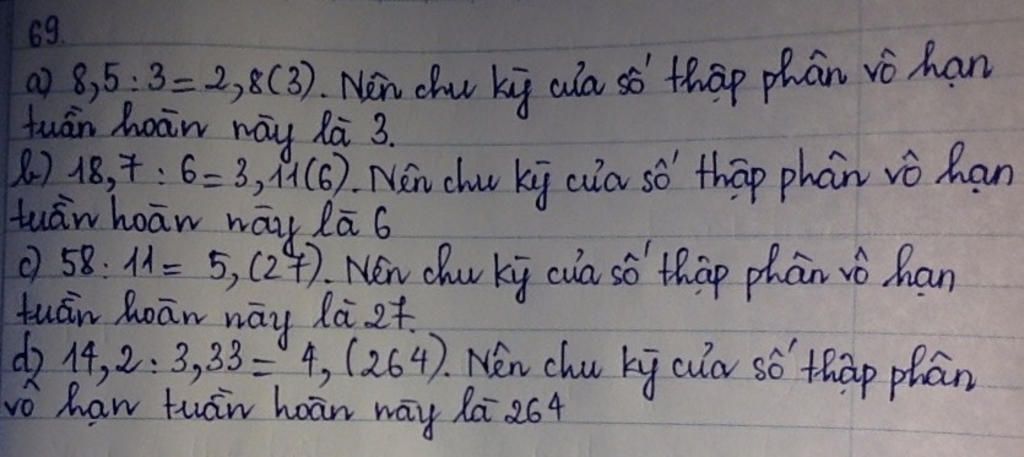 69.
a) 8,5 : 3 = 2,8(3). Nên chu kỹ của số thập phân vô hạn
tuần hoàn này là 3.
b) 18,7 : 6 = 3,11(6). Nên chu kỹ của số thập phân vô hạn
tuần hoàn này là 6
c) 58 : 11 = 5,(27). Nên chu kỹ của số thập phân vô hạn
tuần hoàn này là 27.
d) 14,2 : 3,33 = 4,(264). Nên chu kỹ của số thập phân
vô hạn tuần hoàn này là 264